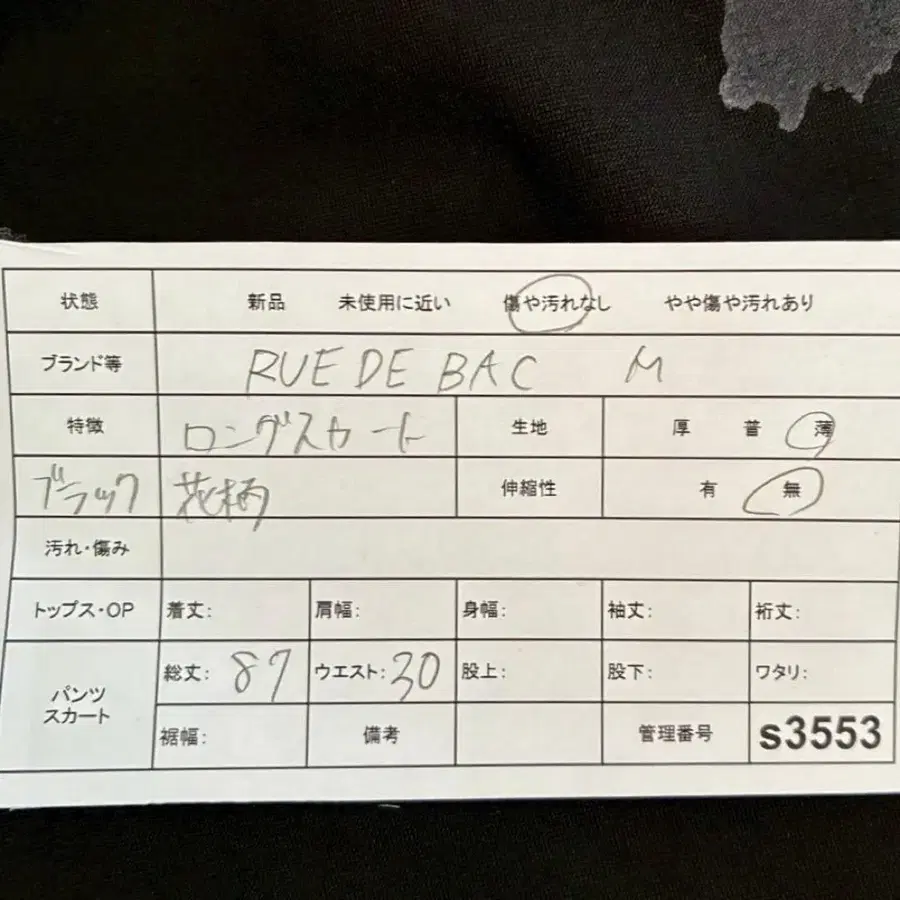 状態 新品 未使用に近い 傷や汚れなし やや傷や汚れあり
ブランド等 RUE DE BAC M
特徴 ロングスカート 生地 厚 普 薄
ブラック 花柄 伸縮性 有 無
汚れ・傷み
トップス・OP 着丈: 肩幅: 身幅: 袖丈: 裄丈:
パンツ スカート 総丈: 87 ウエスト: 30 股上: 股下: ワタリ:
裾幅: 備考 管理番号 s3553